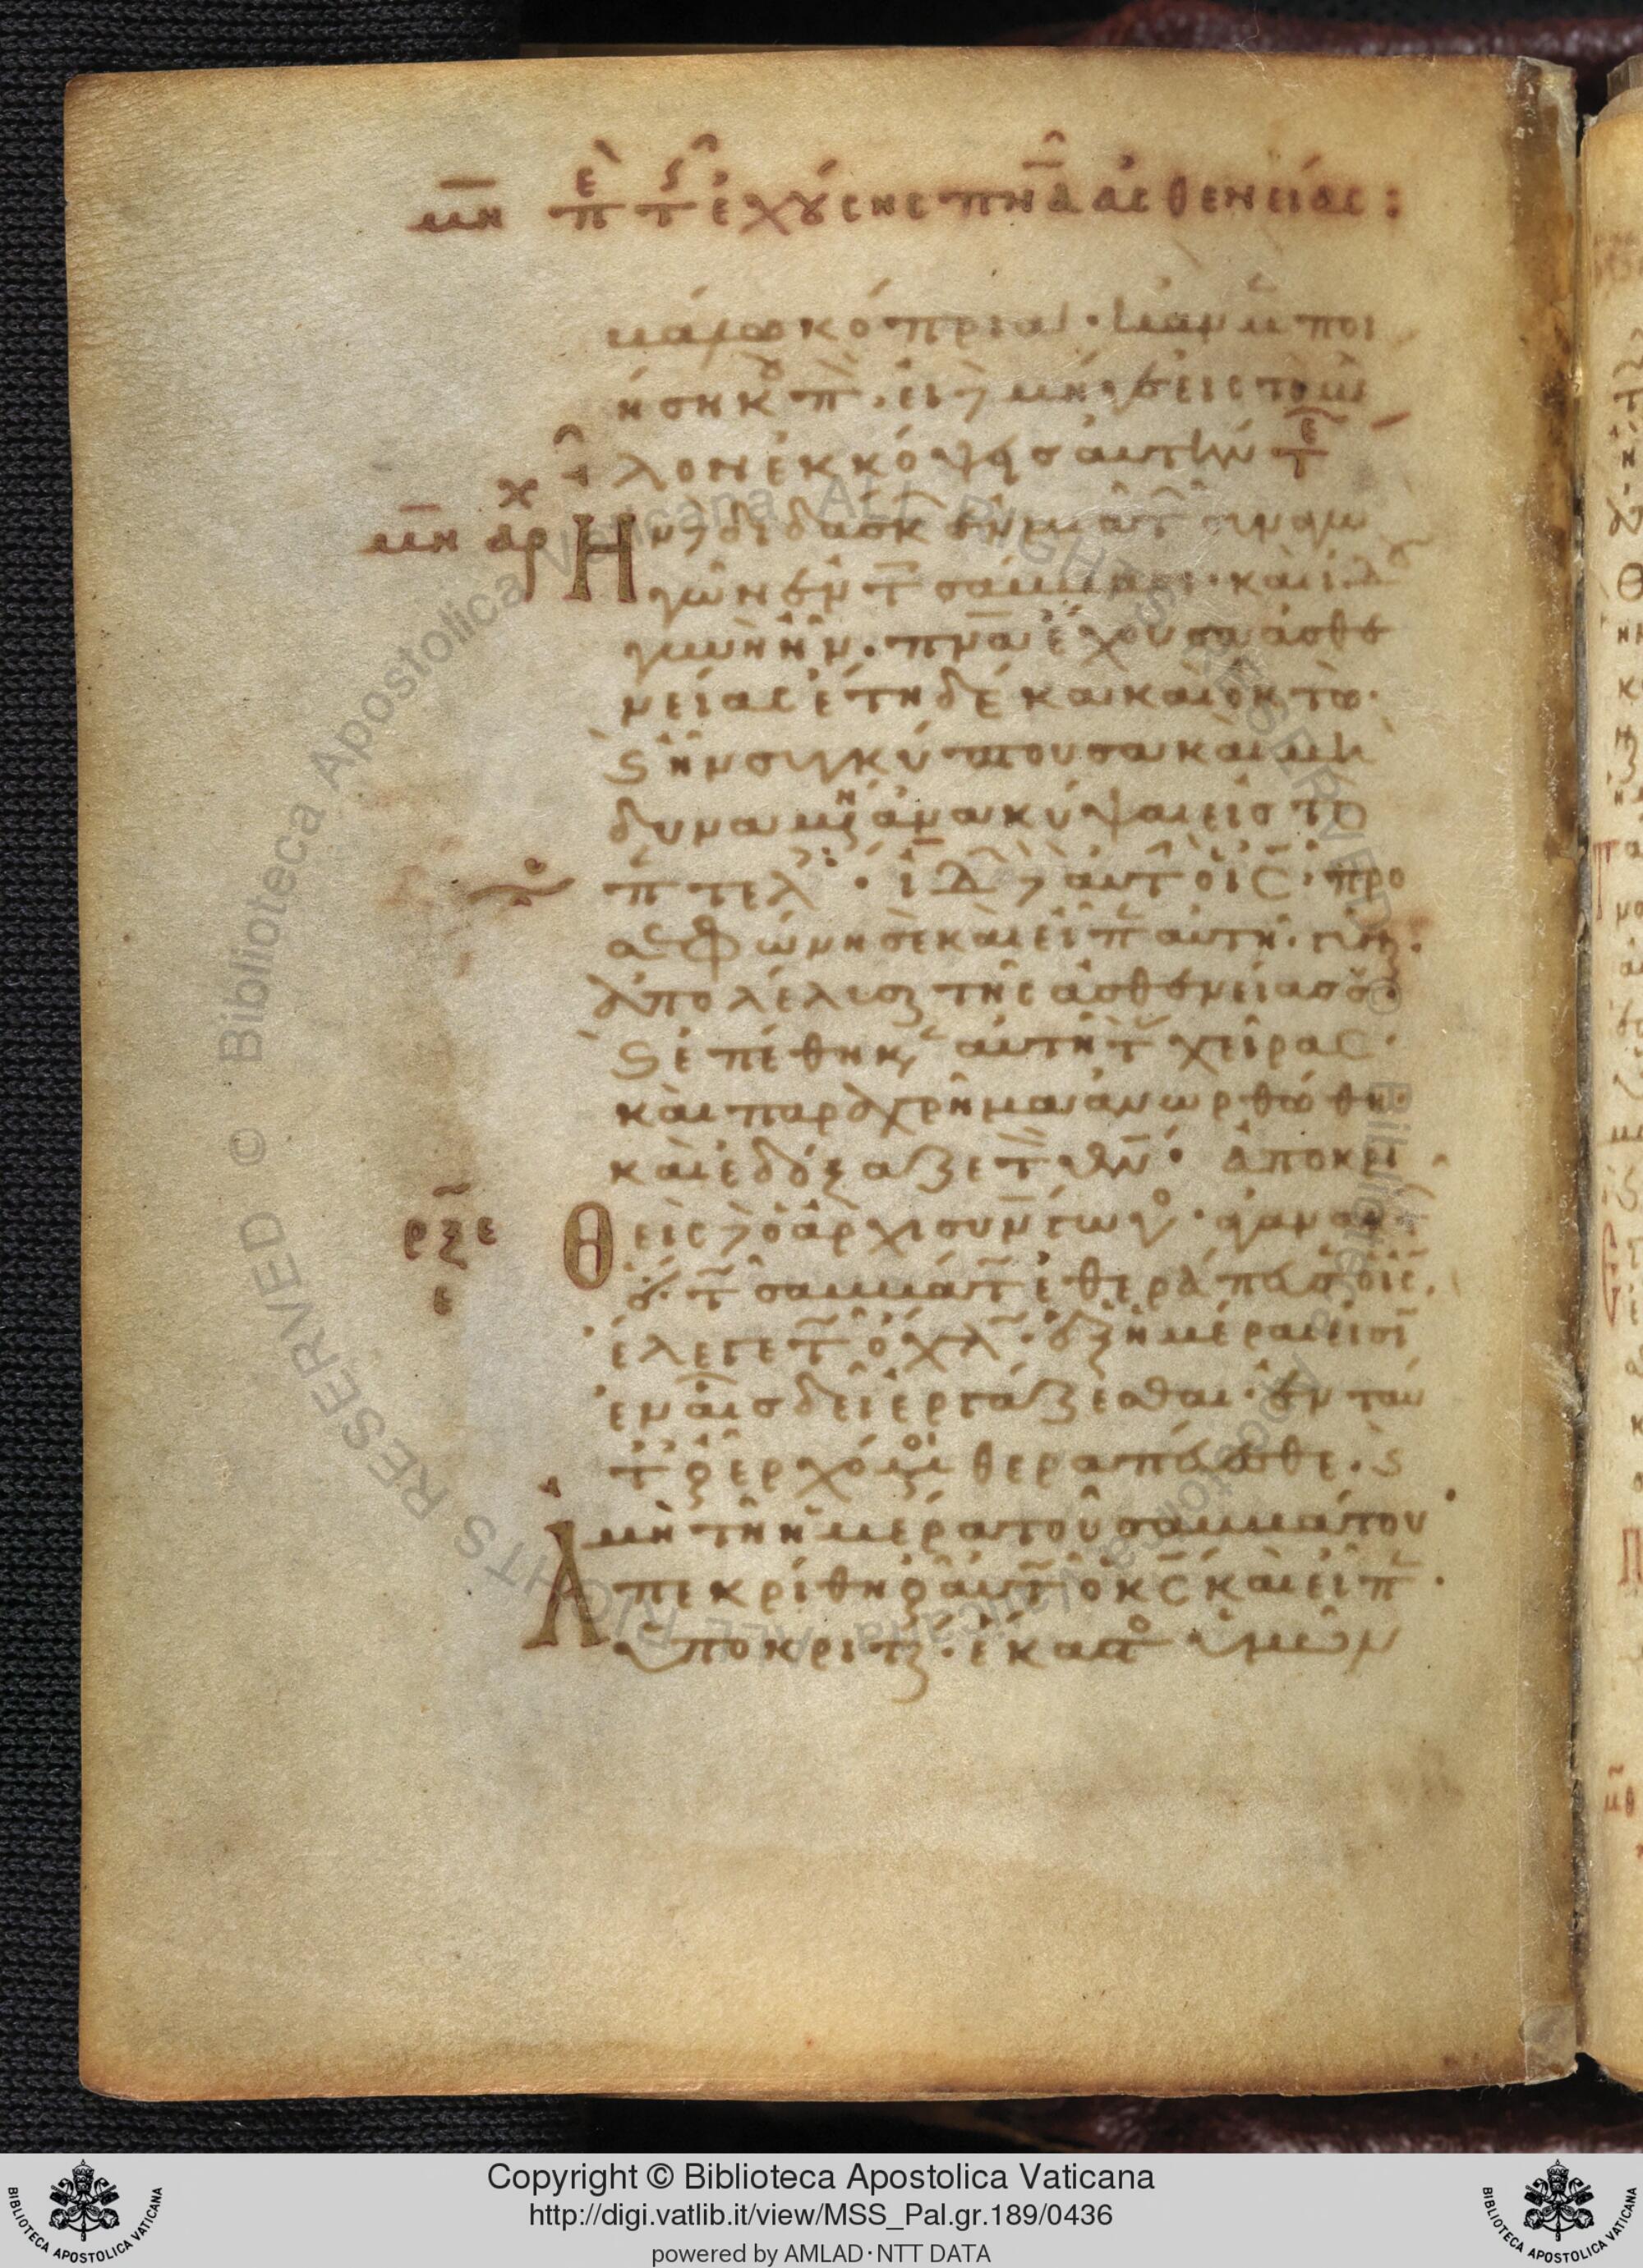 μη πε τ εχουσης πνα ασθενειας:
βάλω κόπρια· κἂν μ ποι
ήση κπ. ει μηγε εις το μ
λον ἐκκόψης αὐτὴν τε
μη αρχ Ην διδάσκ ἐν μιᾶ τ συναγω
γῶν ἐν τ σάββασι· καὶ ιδου
γυνὴ ἦν. πνα ἔχουσα ἀσθε
νείας ἔτη δέκα καὶ ὀκτώ·
ϛ ἦν συγκύπτουσα καὶ μὴ
δυναμένη ἀνακύψαι εἰς τὸ
π τελ· ἰδ αὐτ ὁ ις· προ
σεφώνησε καὶ εἶπ αὐτῆ· γύναι.
ἀπολέλυσαι τῆς ἀσθενείας σου·
ϛ ἐπέθηκ αὐτῆ τ χεῖρας·
καὶ παραχρῆμα ἀνωρθώθη·
καὶ ἐδόξαζε τ θν· Ἀποκρι
ρξε
ε
Θεὶς ὁ ἀρχισυνάγωγο· ἀγανακτ
ὅτι τ σαββάτ ἐθεράπευσ ὁ ις.
ἔλεγε τ ὄχλ· ἓξ ἡμέραι εἰσὶ
ἐν αἷς δεῖ ἐργάζεσθαι· ἐν ταύ
τ οὖν ἐρχόμενοι θεραπεύεσθε. ϛ
μὴ τῆ ἡμέρα τοῦ σαββάτου
Ἀπεκρίθη οὖν αὐτ ὁ κς καὶ εἶπ.
ὑποκριταί· ἕκαστο ὑμῶν
Copyright © Biblioteca Apostolica Vaticana
http://digi.vatlib.it/view/MSS_Pal.gr.189/0436
powered by AMLAD·NTT DATA
BIBLIOTECA APOSTOLICA VATICANA
BIBLIOTECA APOSTOLICA VATICANA